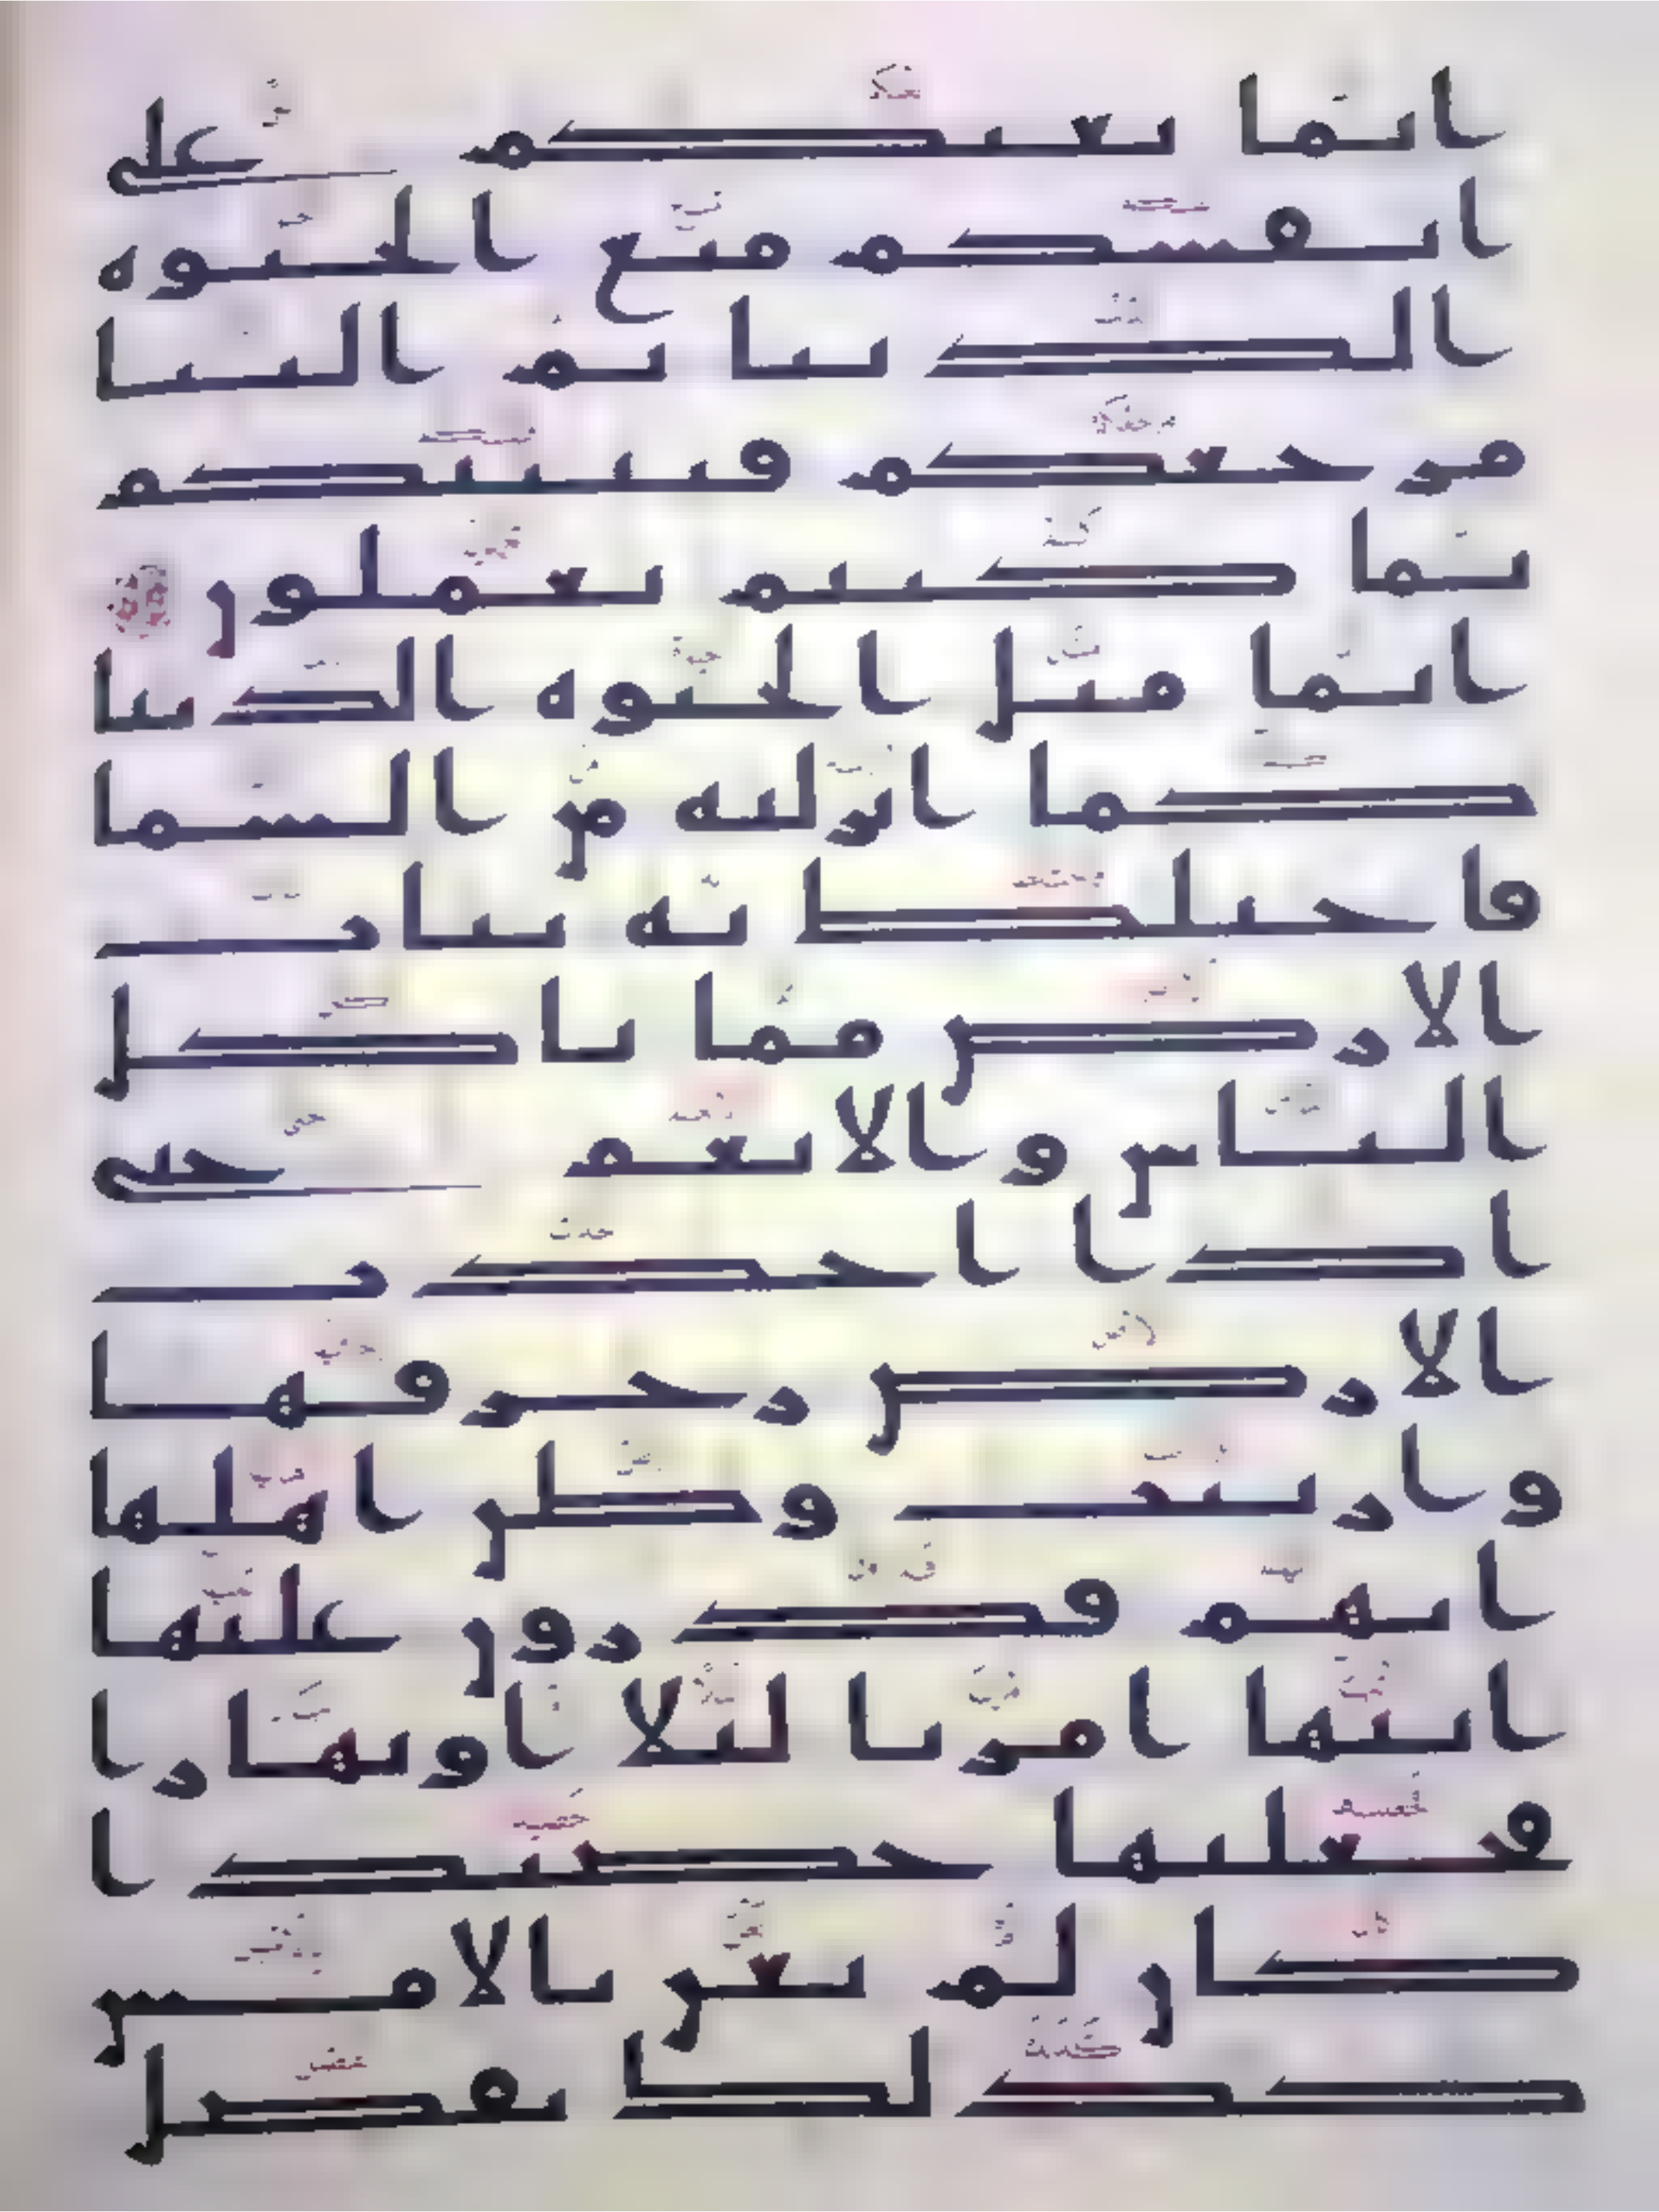 انما بغيكم على
انفسكم متع الحيوه
الدنيا ثم الينا
مرجعكم فننبئكم
بما كنتم تعملون
انما مثل الحيوه الدنيا
كما انزلنه من السما
فاختلط به نبات
الارض مما ياكل
الناس والانعم حتى
اذا اخذت
الارض زخرفها
وازينت وظن اهلها
انهم قدرون عليها
اتيها امرنا ليلا او نهارا
فجعلنها حصيدا
كان لم تغن بالامس
كذلك نفصل